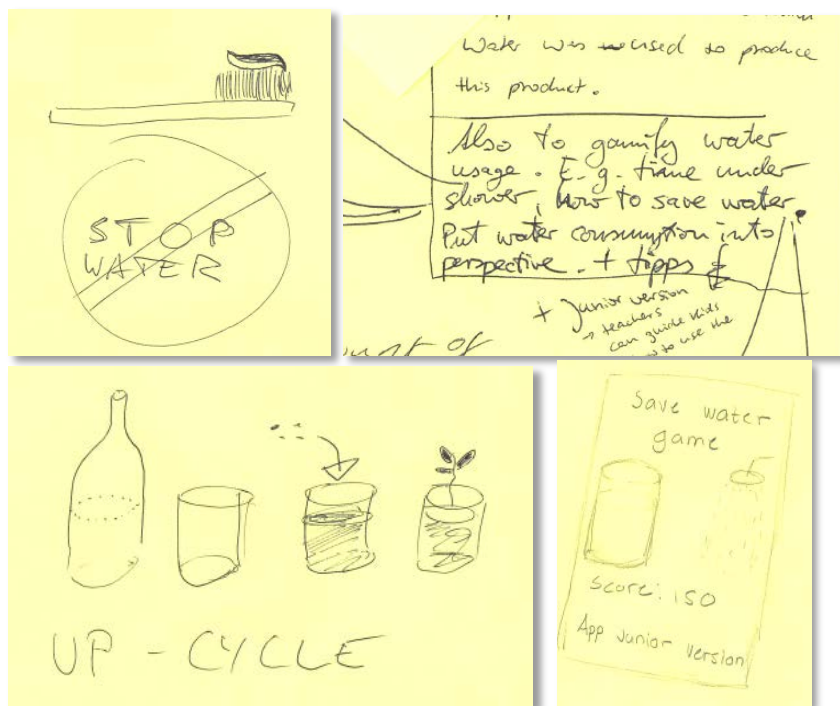 STOP
WATER
Water was used to produce
this product.
Also to gamify water
usage. E.g. time under
shower, how to save water
Put water consumption into
perspective. + tipps
+ Junior version
→ teachers
can guide kids
to use the
of
UP-CYCLE
Save water
game
Score: 150
App Junior Version